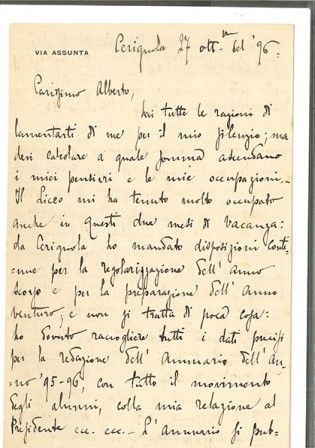 VIA ASSUNTA
Cerignola 27 ott.bre del '96=
Carissimo Alberto,
hai tutte le ragioni di
lamentarti di me per il mio silenzio; ma
devi calcolare a quale somma ascendano
i miei pensieri e le mie occupazioni.
Il Liceo mi ha tenuto molto occupato
anche in questi due mesi di vacanza:
da Cerignola ho mandato disposizioni conti=
=nue per la regolarizzazione dell'Anno
scorso e per la preparazione dell'Anno
venturo; e non si tratta di poca cosa:
ho dovuto raccogliere tutti i dati precisi
per la redazione dell'Annuario dell'An=
=no '95-96, con tutto il movimento
degli alunni, colla mia relazione al
Presidente ecc. ecc. — L'Annuario si pub=